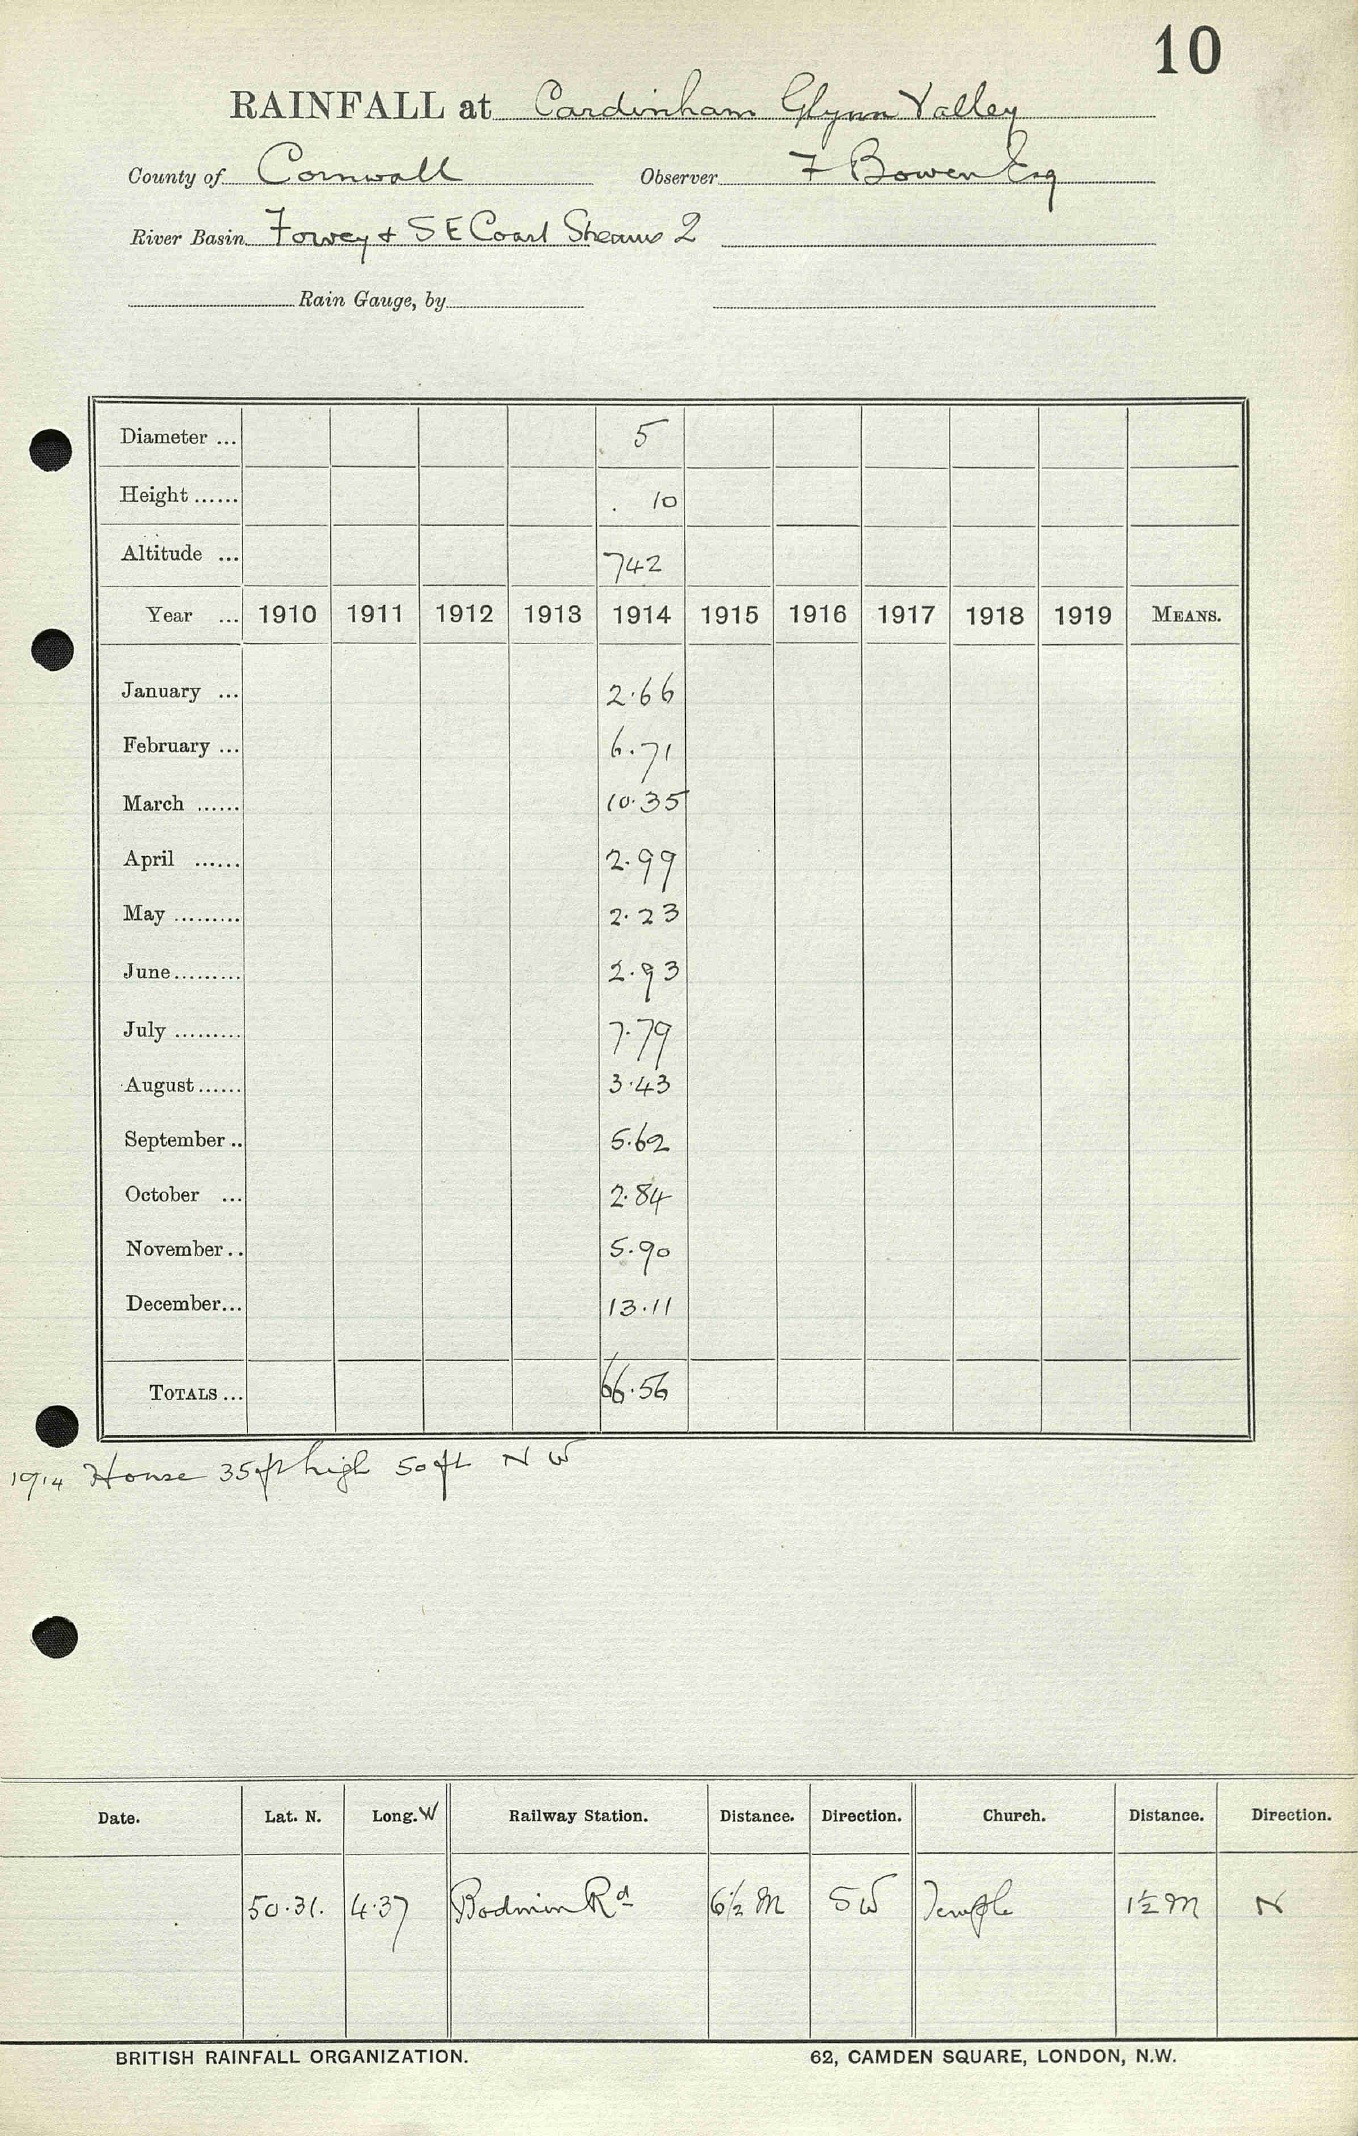 10
RAINFALL at Cardinham Glynn Valley
County of Cornwall Observer F Bowen Esq
River Basin Fowey & SE Coast Streams 2
Rain Gauge, by
Diameter ... 5
Height ...... 10
Altitude ... 742
Year ... 1910 1911 1912 1913 1914 1915 1916 1917 1918 1919 MEANS.
January ... 2.66
February ... 6.71
March ...... 10.35
April ...... 2.99
May ......... 2.23
June ......... 2.93
July ......... 7.79
August ...... 3.43
September .. 5.62
October ... 2.84
November .. 5.90
December ... 13.11
TOTALS ... 66.56
1914 House 35ft high 50ft NW
Date. Lat. N. Long. W Railway Station. Distance. Direction. Church. Distance. Direction.
50.31. 4.37 Bodmin Rd 6½ M SW Temple 1½ M N
BRITISH RAINFALL ORGANIZATION. 62, CAMDEN SQUARE, LONDON, N.W.